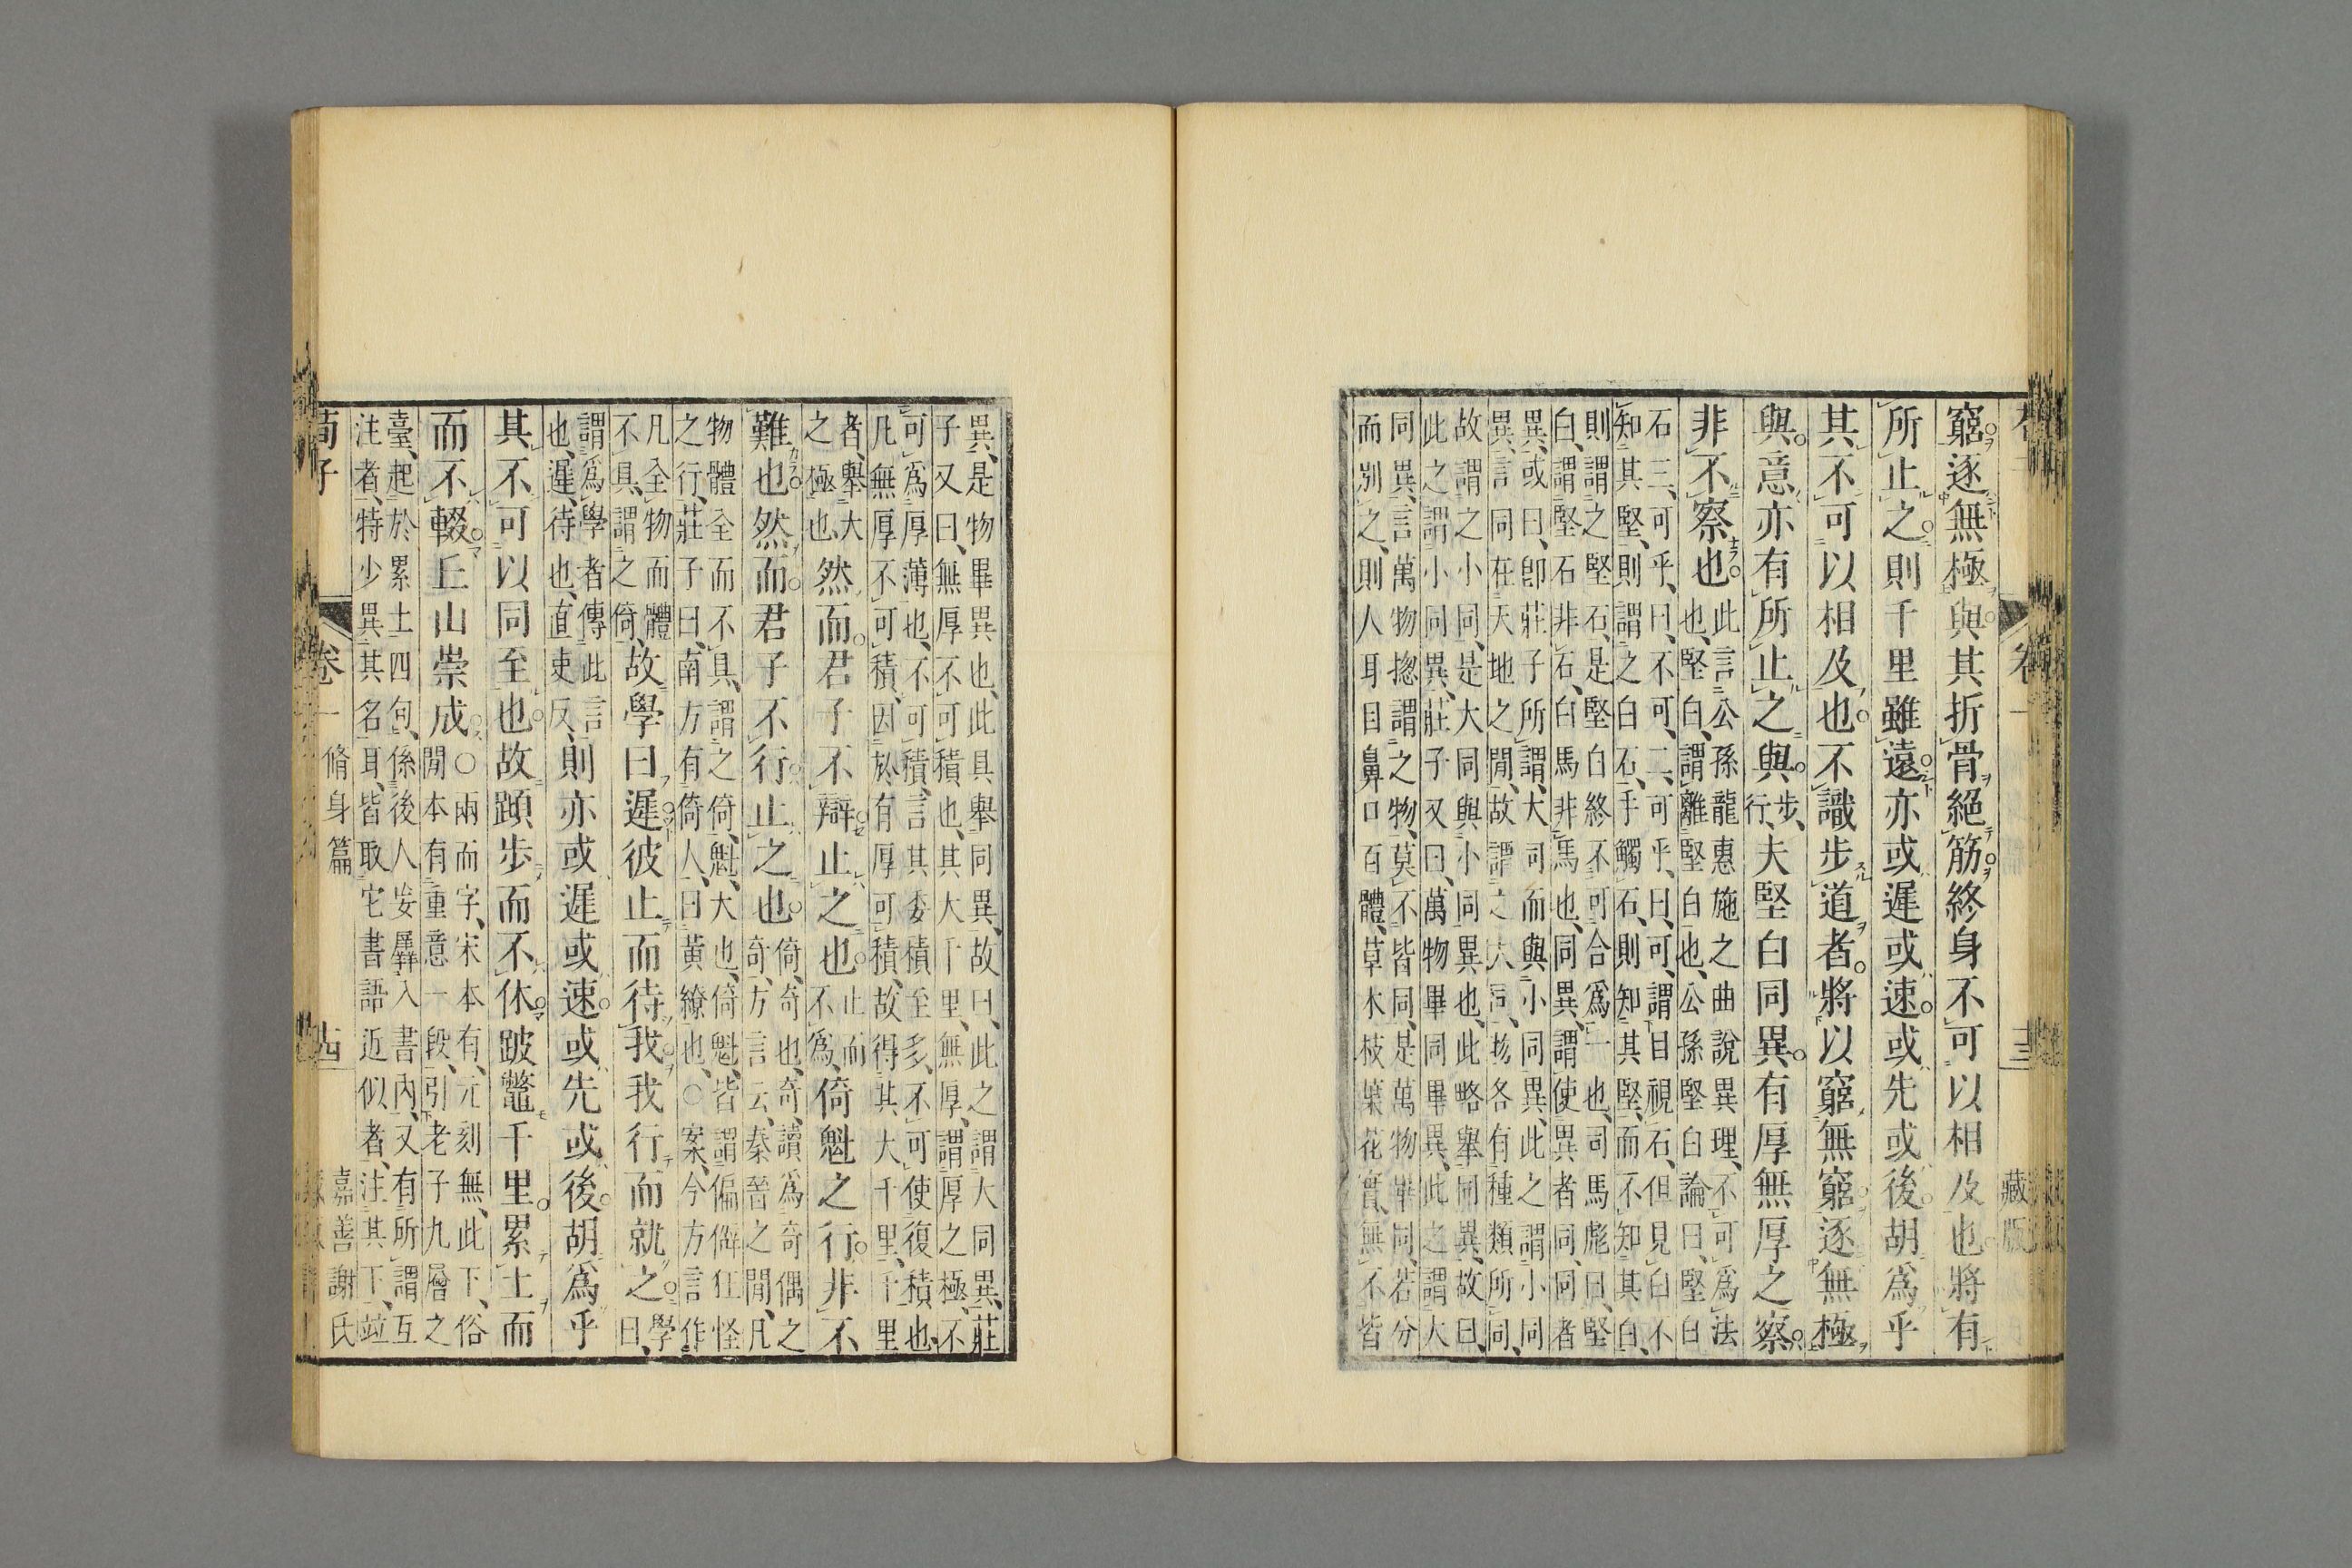 窮逐無極與其折骨絕筋終身不可以相及也將有
所止之則千里雖遠亦或遲或速或先或後胡爲乎
其不可以相及也不識步道者將以窮無窮逐無極
與意亦有所止之與步、行、夫堅白同異有厚無厚之察
非不察也此言公孫龍惠施之曲說異理、不可爲法
也、堅白、謂離堅白也、公孫堅白論曰、堅白
石三、可乎、曰、不可、二、可乎、曰、可、謂目視石、但見白不
知其堅、則謂之白石、手觸石、則知其堅、而不知其白、
則謂之堅石、是堅白終不可合爲一也、司馬彪曰、堅
白、謂堅石非石、白馬非馬也、同異、謂使異者同、同者
異、或曰、卽莊子所謂、大同而與小同異、此之謂小同
異、言同在天地之閒、故謂之大同、物各有種類所同、
故謂之小同、是大同與小同異也、此略舉同異、故曰、
此之謂小同異、莊子又曰、萬物畢同畢異、此之謂大
同異、言萬物摠謂之物、莫不皆同、是萬物畢同、若分
而別之、則人耳目鼻口百體、草木枝葉花實、無不皆
異、是物畢異也、此具舉同異、故曰、此之謂大同異、莊
子又曰、無厚不可積也、其大千里、無厚、謂厚之極、不
可爲厚薄也、不可積、言其委積至多、不可使復積也、
凡無厚不可積、因於有厚可積、故得其大千里、千里
者、舉大
之極也、然而君子不辯止之也止而
不爲、倚魁之行非不
難也然而君子不行止之也倚、奇也、奇、讀爲奇偶之
奇、方言云、秦晉之閒、凡
物體全而不具、謂之倚、魁、大也、倚魁、皆謂偏僻狂怪
之行、莊子曰、南方有倚人、曰黃繚也、○案、今方言作
凡全物而體
不具、謂之倚、故學曰遲彼止而待我我行而就之學
曰、
謂爲學者傳此言
也、遲、待也、直吏反、則亦或遲或速或先或後胡爲乎
其不可以同至也故蹞步而不休跛鼈千里累土而
而不輟丘山崇成○兩而字、宋本有、元刻無、此下、俗
閒本有重意一段、引老子九層之
臺、起於累土四句、係後人妄羼入書內、又有所謂互
注者、特少異其名耳、皆取它書語近似者、注其下、竝
荀子
卷一
脩身篇
十四
嘉善謝氏
卷一
十三
藏版